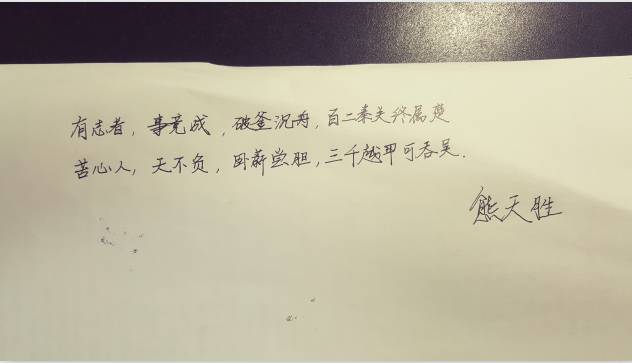 有志者，事竟成，破釜沉舟，百二秦关终属楚
苦心人，天不负，卧薪尝胆，三千越甲可吞吴.
熊天胜